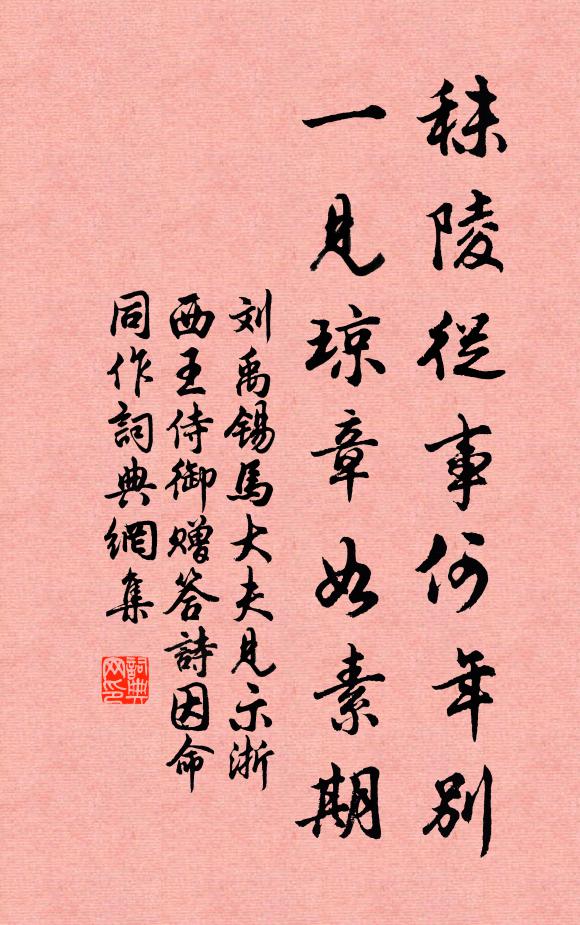 秣陵從事何年別
一見瓊章如素期
刘禹錫馬大夫見示浙
西王侍御赠答詩因命
同作詞典網集
詞典网印